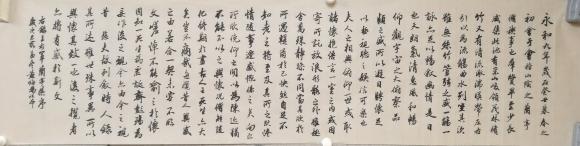 永和九年歲在癸丑暮春之
初會于會稽山陰之蘭亭
脩禊事也群賢畢至少長
咸集此地有崇山峻領茂林脩
竹又有清流激湍暎帶左右
引以為流觴曲水列坐其次
雖無絲竹管弦之盛一觴一
詠亦足以暢敘幽情是日
也天朗氣清惠風和暢
仰觀宇宙之大俯察品
類之盛所以遊目騁懷足
以極視聽之娛信可樂也
夫人之相與俯仰一世或取
諸懷抱悟言一室之內或因
寄所託放浪形骸之外雖趣
舍萬殊靜躁不同當其欣於
所遇暫得於己快然自足不
知老之將至及其所之既惓
情隨事遷感慨係之矣向之
所欣俛仰之間以為陳迹猶
不能不以之興懷況脩短隨
化終期於盡古人云死生亦大
矣豈不痛哉每攬昔人興感
之由若合一契未嘗不臨
文嗟悼不能喻之於懷
固知一死生為虛誕齊彭殤為
妄作後之視今亦由今之視
昔悲夫故列敘時人錄
其所述雖世殊事異所以
興懷其致一也後之攬者
亦將有感於斯文
右錄王右軍蘭亭集序